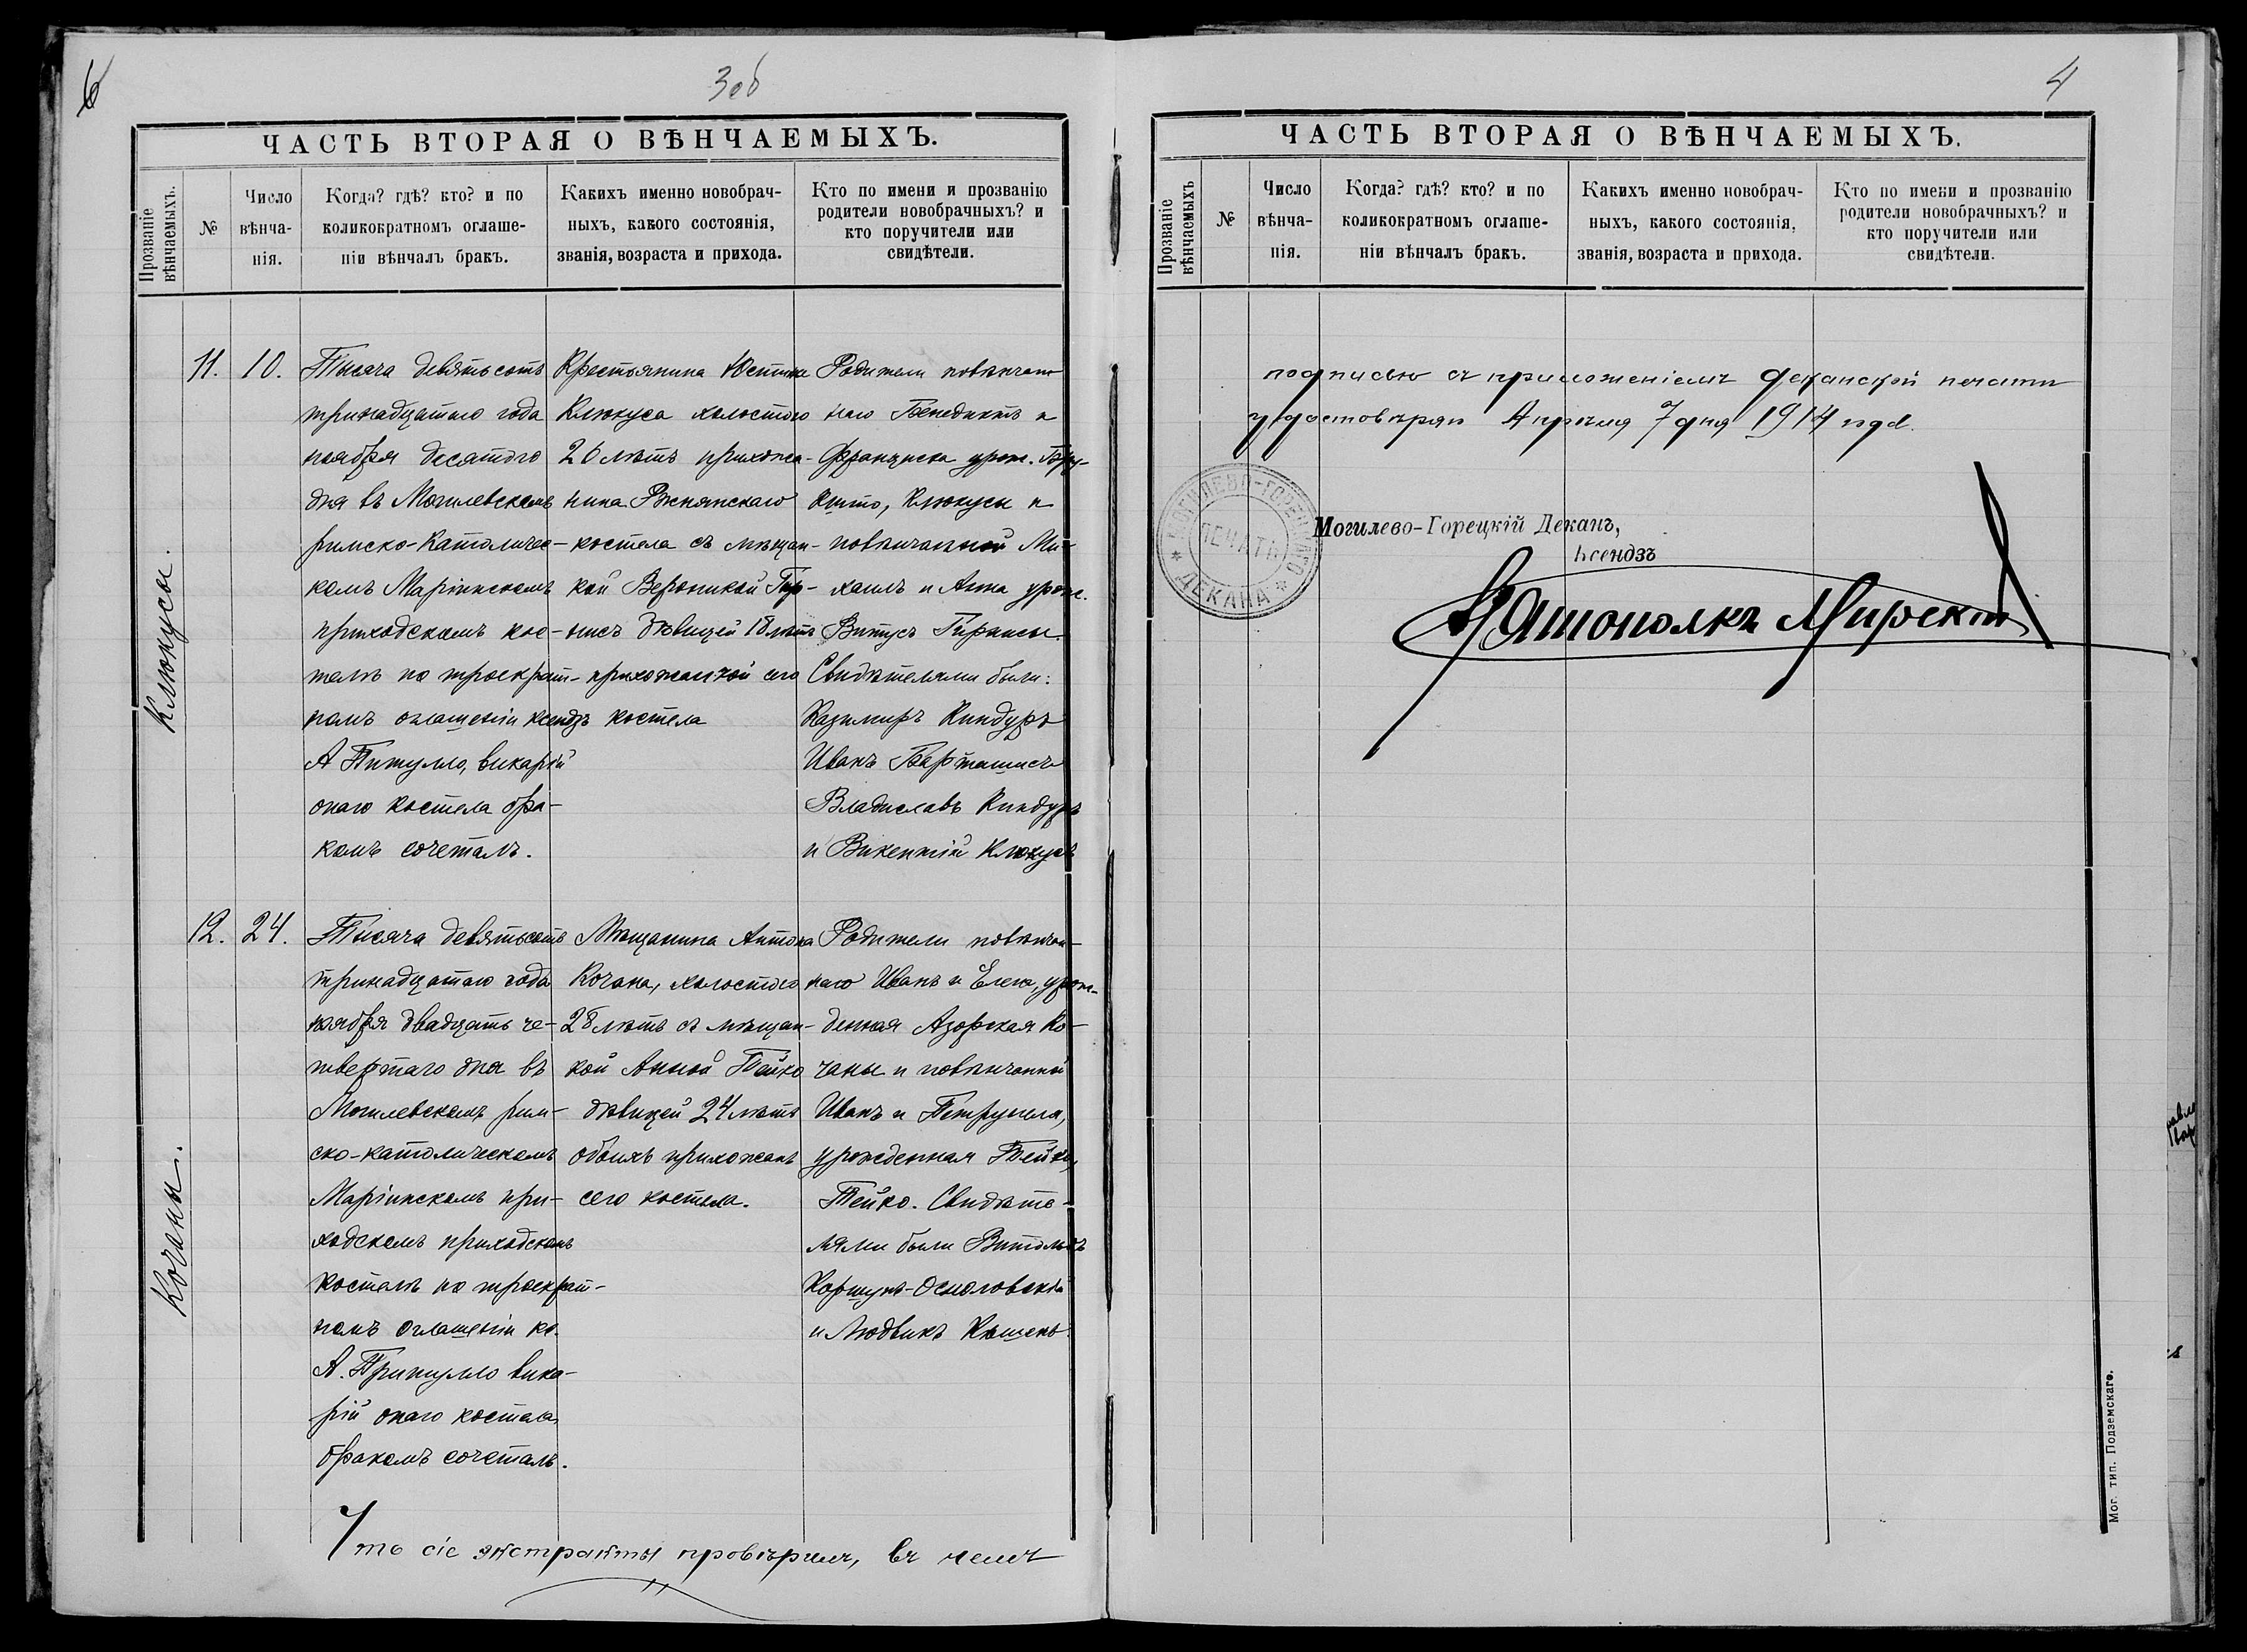 6
3 об
ЧАСТЬ ВТОРАЯ О ВѢНЧАЕМЫХЪ.
Прозваніе
вѣнчаемыхъ.
№
Число
вѣнча-
нія.
Когда? гдѣ? кто? и по
коликократномъ оглаше-
ніи вѣнчалъ бракъ.
Какихъ именно новобрач-
ныхъ, какого состоянія,
званія, возраста и прихода.
Кто по имени и прозванію
родители новобрачныхъ? и
кто поручители или
свидѣтели.
Клюкусы.
11.
10.
Тысяча девятьсотъ
тринадцатаго года
ноября десятого
дня въ Могилевскомъ
римско-Католичес-
комъ Маріинскомъ
приходскомъ кос-
телѣ по троекрат-
номъ оглашеніи ксендзъ
А Пипулло, викарій
онаго костела бра-
комъ сочеталъ.
Крестьянина Юстина
Клюкуса холостого
26 лѣтъ прихожа-
нина Рясненскаго
костела съ мѣщан-
кой Вероникой Гир-
дѣвицей 18 лѣтъ
прихожанкой сего
костела
Родители повѣнчан
наго Бенедиктъ и
Франциска урож.
Клюкусы и
повѣнчанной Ми-
хаилъ и Анна урож.
Витусъ
Свидѣтелями были:
Казимиръ Киндуръ
Иванъ Барташисъ
Владиславъ Киндуръ
и Викентій Клюкусъ
Кочаны.
12.
24.
Тысяча девятьсотъ
тринадцатаго года
ноября двадцать че-
твертаго дня въ
Могилевскомъ рим-
ско-католическомъ
Маріинскомъ при-
ходскомъ приходскомъ
костелѣ по троекрат-
номъ оглашеніи кс.
А. Припулло вика-
рій онаго костела
бракомъ сочеталъ.
Мѣщанина Антона
Кочана, холостого
28 лѣтъ съ мѣщан-
кой Анной Тейко
дѣвицей 24 лѣтъ
обоихъ прихожанъ
сего костела.
Родители повѣнчан-
наго Иванъ и Елена, урож-
денная Азорская Ко-
чаны и повѣнчанной
Иванъ и Петрунеля,
урожденная Тейко,
Тейко. Свидѣте-
лями были Витольдъ
Коршунъ-Осмоловскій
и Людвикъ Кошень.
Что сіе экстракты провѣрилъ, въ чемъ
4
ЧАСТЬ ВТОРАЯ О ВѢНЧАЕМЫХЪ.
Прозваніе
вѣнчаемыхъ
№
Число
вѣнча-
нія.
Когда? гдѣ? кто? и по
коликократномъ оглаше-
ніи вѣнчалъ бракъ.
Какихъ именно новобрач-
ныхъ, какого состоянія,
званія, возраста и прихода.
Кто по имени и прозванію
родители новобрачныхъ? и
кто поручители или
свидѣтели.
подписью съ приложеніемъ деканской печати
удостовѣряю Апрѣля 7 дня 1914 года.
МОГИЛЕВО-ГОРЕЦКАГО
ПЕЧАТЬ
ДЕКАНА
Могилево-Горецкій Деканъ,
Ксендзъ
Святополкъ Мирскій
Мог. тип. Подземскаго.